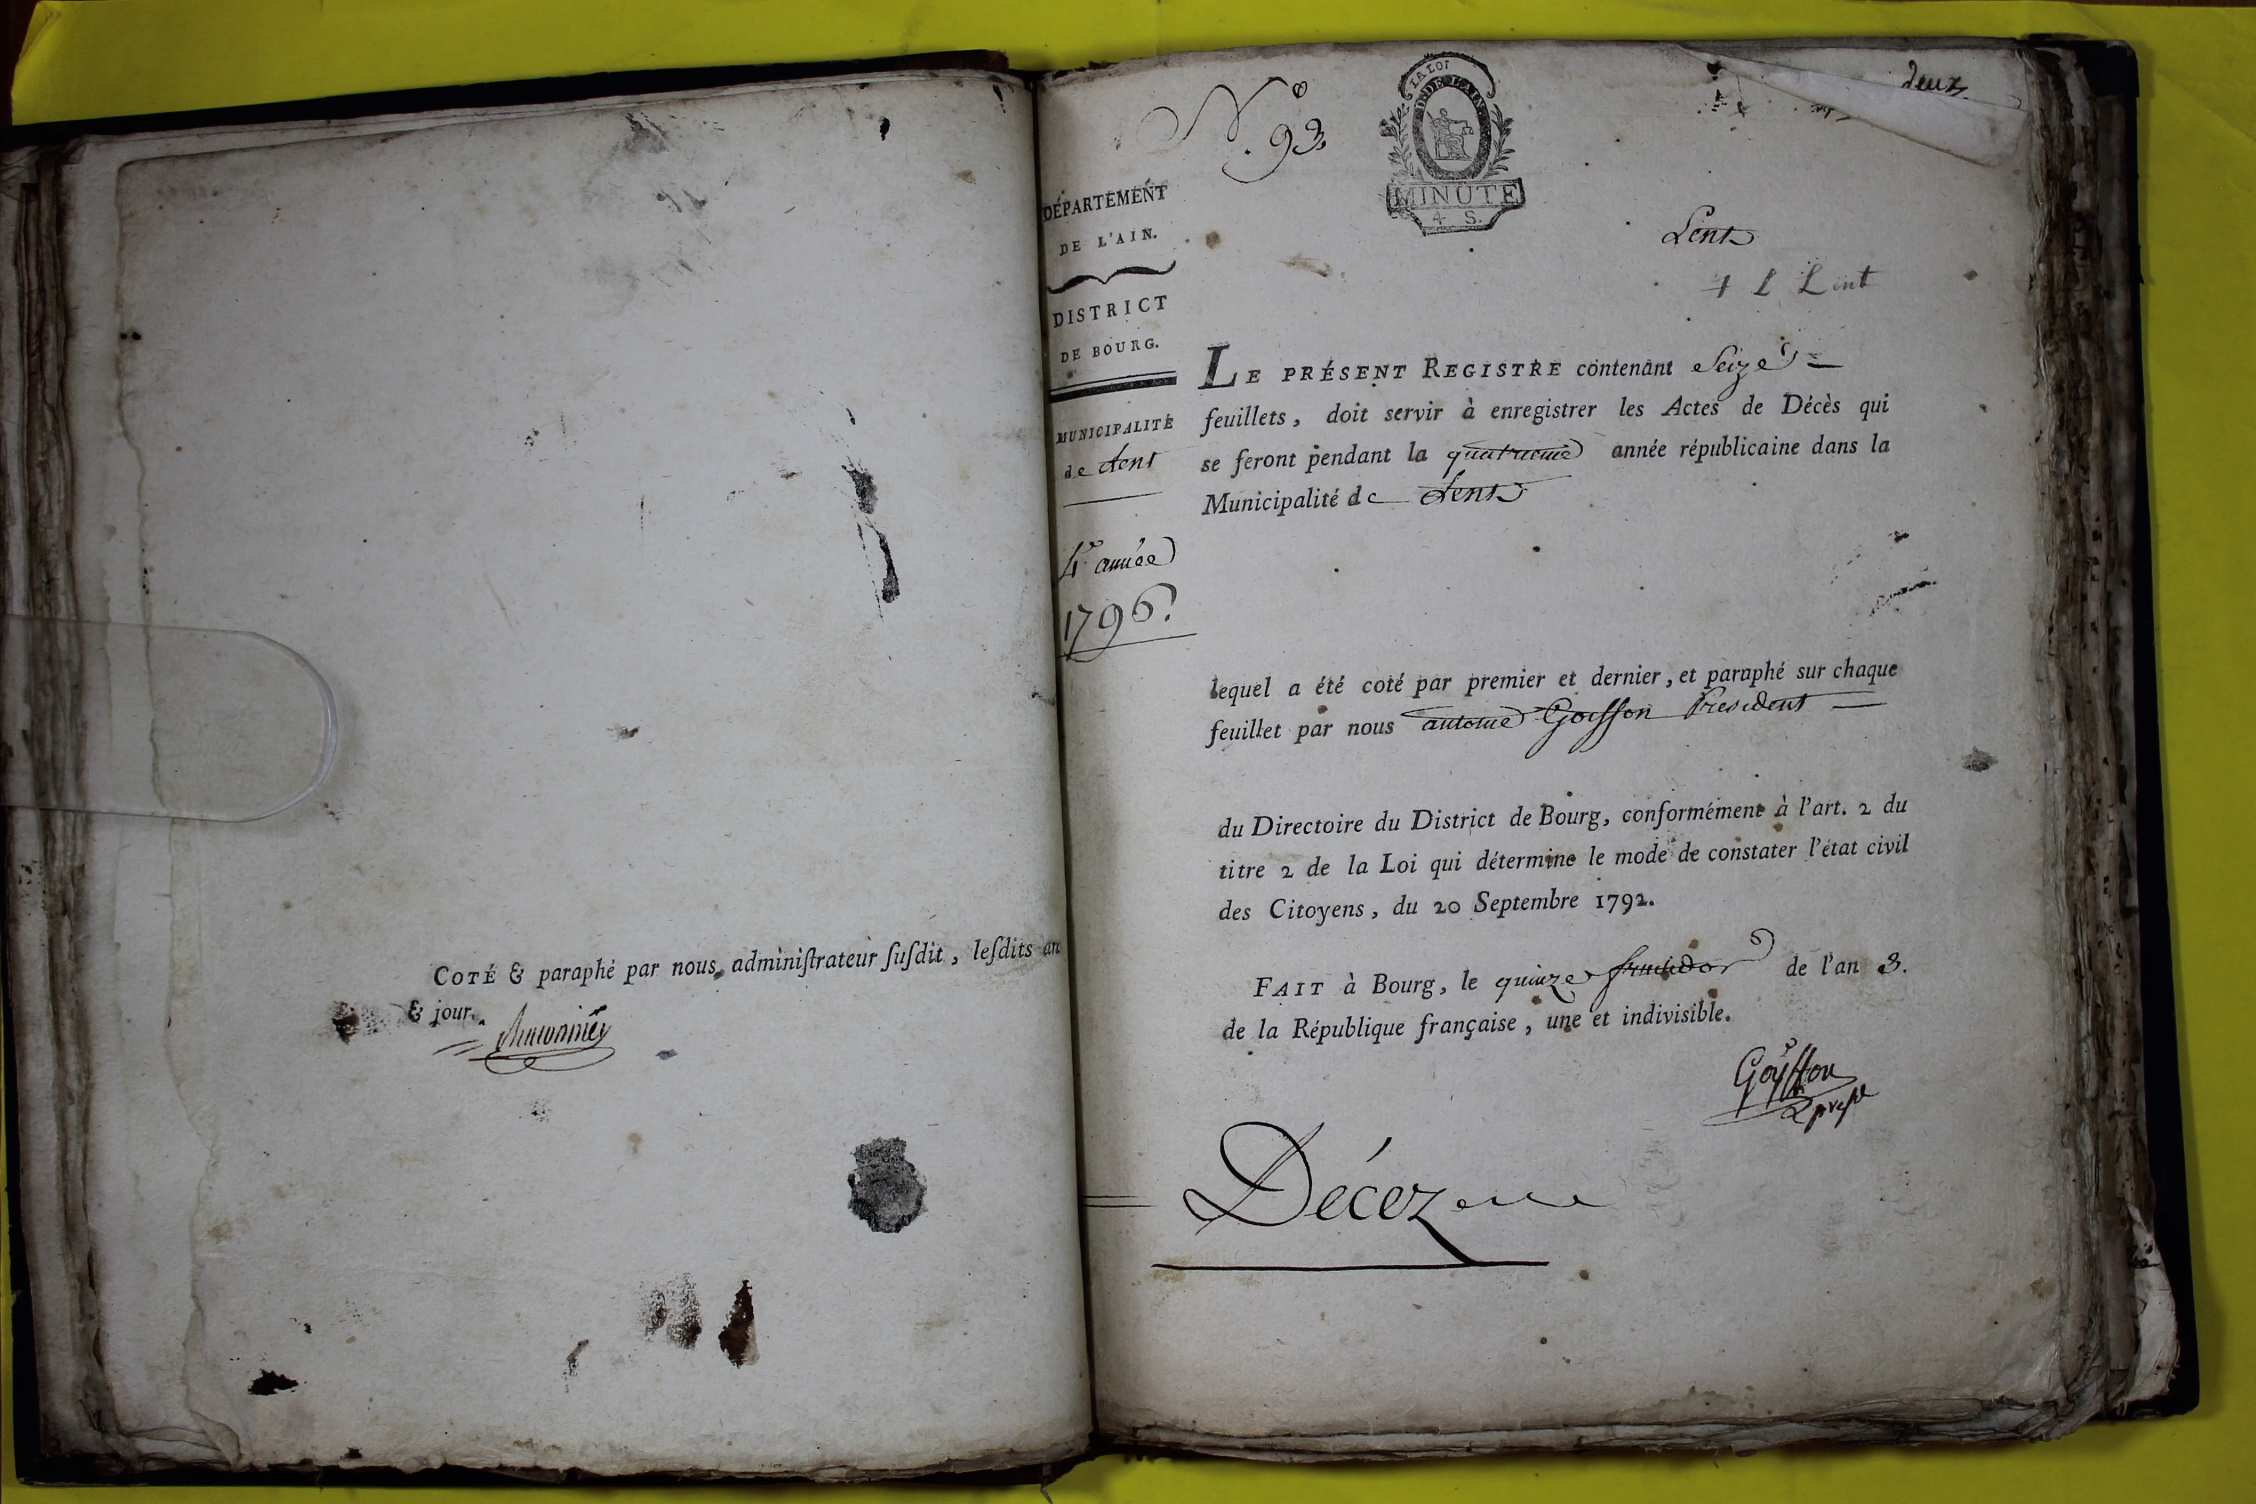 COTÉ & paraphé par nous, adminiſtrateur ſuſdit, leſdits an
& jour.
deux.
N.o 93.
LA LOI
MINUTE
4 S.
DÉPARTEMENT
DE L'AIN.
DISTRICT
DE BOURG.
MUNICIPALITÉ
de Lent
4e année
1796.
Lent
Lent
LE PRÉSENT REGISTRE contenant Seize
feuillets, doit servir à enregistrer les Actes de Décès qui
se feront pendant la quatrieme année républicaine dans la
Municipalité de Lent
lequel a été coté par premier et dernier, et paraphé sur chaque
feuillet par nous antoine Goiffon President
du Directoire du District de Bourg, conformément à l'art. 2 du
titre 2 de la Loi qui détermine le mode de constater l'état civil
des Citoyens, du 20 Septembre 1792.
FAIT à Bourg, le quinze fructidor de l'an 3.
de la République française, une et indivisible.
Goyffon
Décez